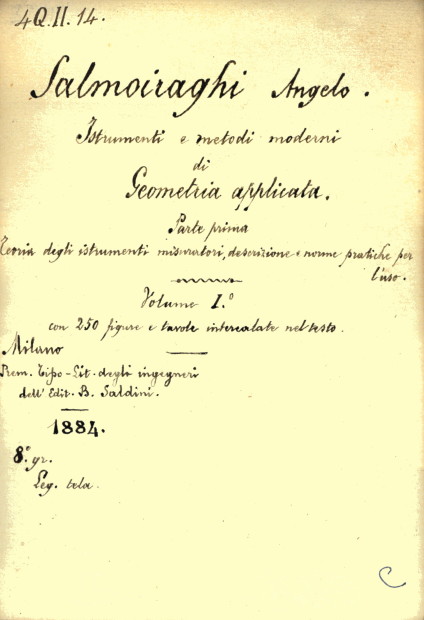 4Q.II.14.
Salmoiraghi Angelo.
Istrumenti e metodi moderni
di
Geometria applicata.
Parte prima
Teoria degli istrumenti misuratori, descrizione e norme pratiche per
l'uso.
Volume I.°
con 250 figure e tavole intercalate nel testo.
Milano
Prem. Tipo-Lit. degli ingegneri
dell' Edit. B. Saldini.
1884.
8.° gr.
Leg. tela.
C